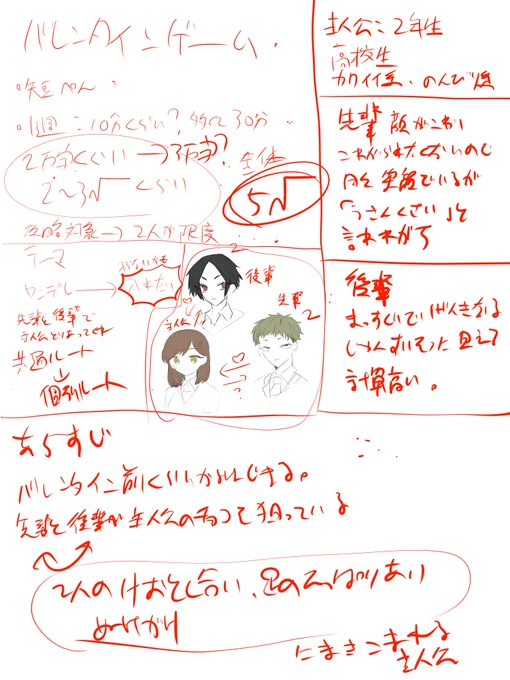 バレンタインゲーム.
・短ぺん
・1週=10分くらい?多くて30分
2万字くらい→3万字?全体
2〜3√くらい
5√
攻略対象→2人が限度
テーマ
ヤンデレ
入れたい
先輩と後輩で
主人公とりあってくれ
共通ルート
↓
個別ルート
2
後輩
先輩
2
主人公
主人公:2年生
高校生
カワイイ系、のんび系
先輩 顔がこわい
こわがられたくないので
「うさんくさい」と
言われがち
後輩
まっすぐでいげんきある
じゅんすいそうに見えて
計算高い。
あらすじ
バレンタイン前くらいからはじまる。
先輩と後輩が主人公のチョコを狙っている
2人のけおとし合い、足のひっぱりあい
ぬけがけ
にまきこまれる
主人公